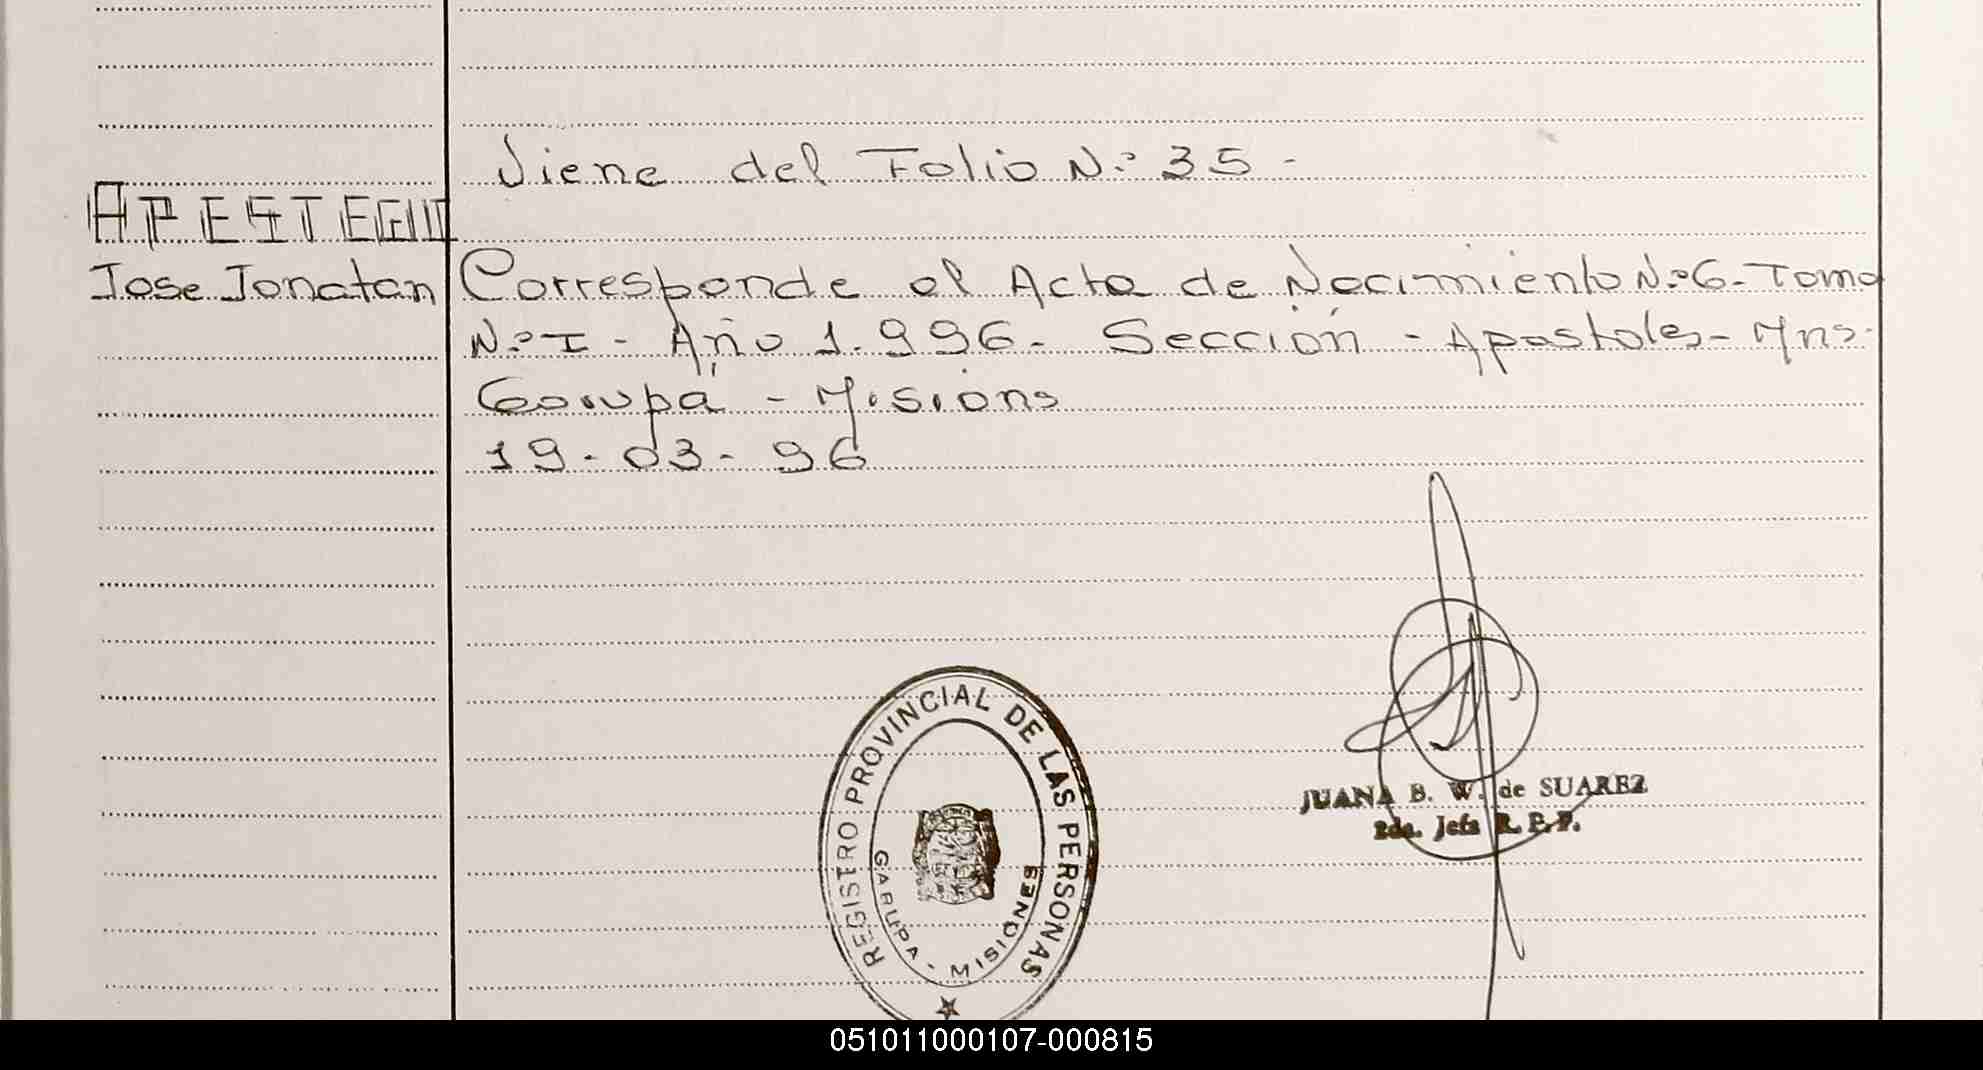 Viene del Folio N.º 35 -
APESTEGUI
Jose Jonatan
Corresponde al Acta de Nacimiento N.º 6 - Tomo
N.º I - Año 1.996 - Sección - Apostoles - Mns.
Garupá - Misions
19 - 03 - 96
REGISTRO PROVINCIAL DE LAS PERSONAS
GARUPA - MISIONES
JUANA B. W. de SUAREZ
2da. Jefa R. P. P.
051011000107-000815